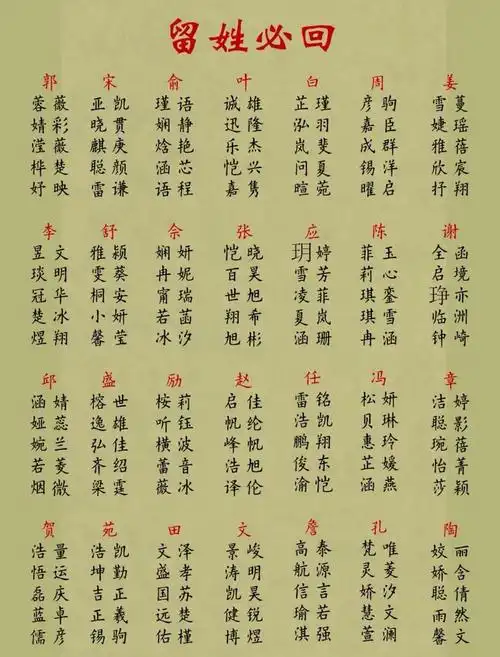 留姓必回
郭 宋 俞 叶 白 周 姜
蓉薇 亚凯 瑾语 诚雄 芷瑾 彦驹 雪蔓
婧彩 晓贯 娴静 迅隆 泓羽 嘉臣 婕瑶
滢薇 麒庚 焓艳 乐杰 岚斐 成群 雅蓓
桦楚 聪颜 涵芯 恺兴 问夏 锡洋 欣宸
妤映 雷谦 语程 嘉隽 暄菀 曜启 抒翔
李 舒 佘 张 应 陈 谢
昱文 雅颖 娴妍 恺晓 玥婷 菲玉 全函
琰明 雯葵 冉妮 百昊 雪芳 莉心 启境
冠华 桐安 甯瑞 世旭 凌菲 琪銮 琤亦
楚冰 小妍 若菡 翔希 夏岚 琪雪 临洲
煜翔 馨莹 冰汐 旭彬 涵珊 冉涵 钟崎
邱 盛 励 赵 任 冯 章
涵婧 榕世 桉莉 启佳 雷铭 松妍 洁婷
娅蕊 逸雄 听钰 帆纶 浩凯 贝琳 聪影
婉兰 弘佳 横波 峰帆 鹏翔 惠玲 琬蓓
若菱 齐绍 蕾音 浩旭 俊东 芷媛 怡菁
烟微 梁霆 薇冰 译伦 渝恺 涵燕 莎颖
贺 苑 田 文 詹 孔 陶
浩量 浩凯 文泽 景峻 高泰 梵唯 姣丽
悟运 坤勤 盛孝 涛明 航源 灵菱 娇含
磊庆 吉正 国苏 凯昊 信言 娇汐 聪倩
蓝卓 正羲 远楚 健锐 瑜若 慧文 雨然
儒彦 锡驹 佑槿 博煜 淇强 萱澜 馨文